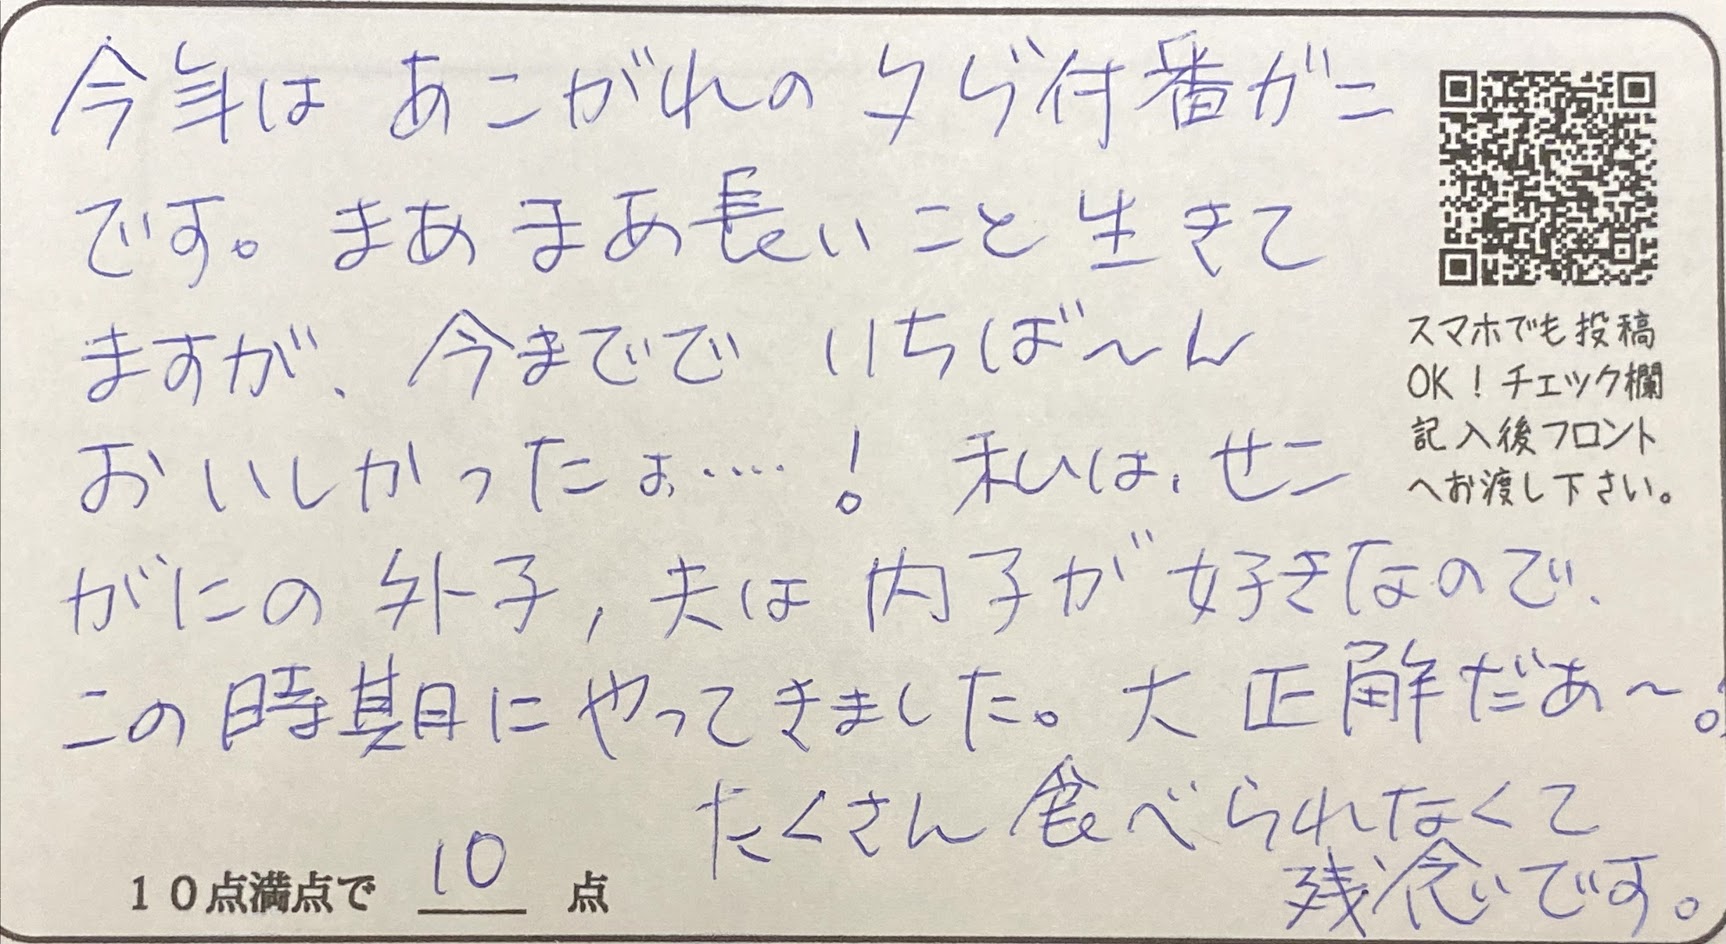 今年は あこがれの タグ付番ガニ
です。まあまあ長いこと生きて
ますが、今までで いちば〜ん
おいしかったぉ…..! 私は、せこ
がにの外子, 夫は内子が好きなので、
この時期にやってきました。大正解だあ〜。
たくさん食べられなくて
残念です。
10点満点で 10 点
スマホでも投稿
OK!チェック欄
記入後フロント
へお渡し下さい。